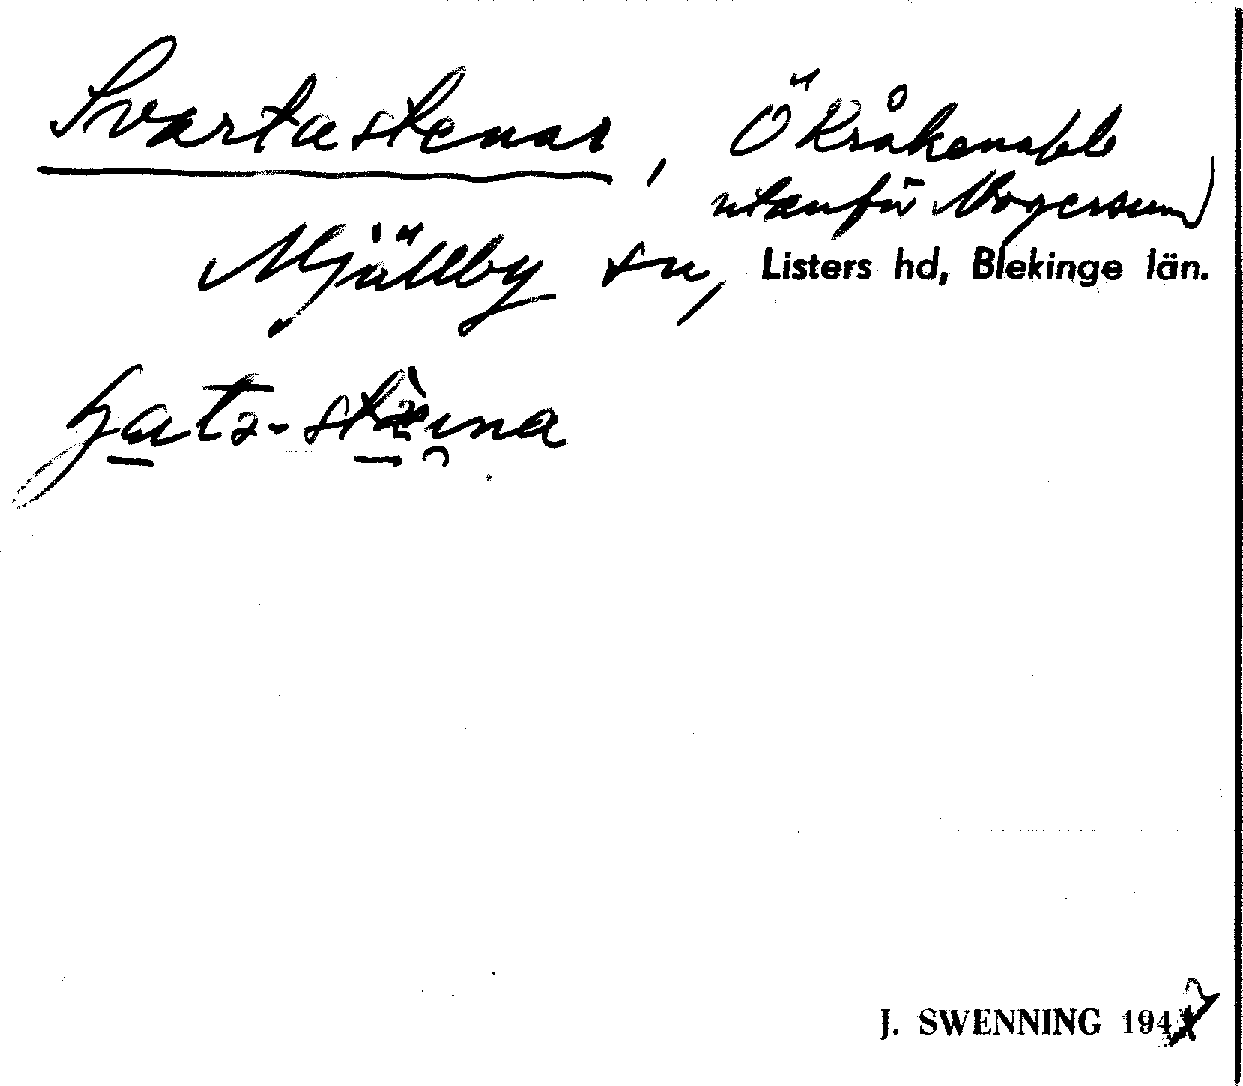 Svartastenar, Ö Kråkenabb
utanför Nogersund)
Mjällby sn, Listers hd, Blekinge län.
J. SWENNING 194